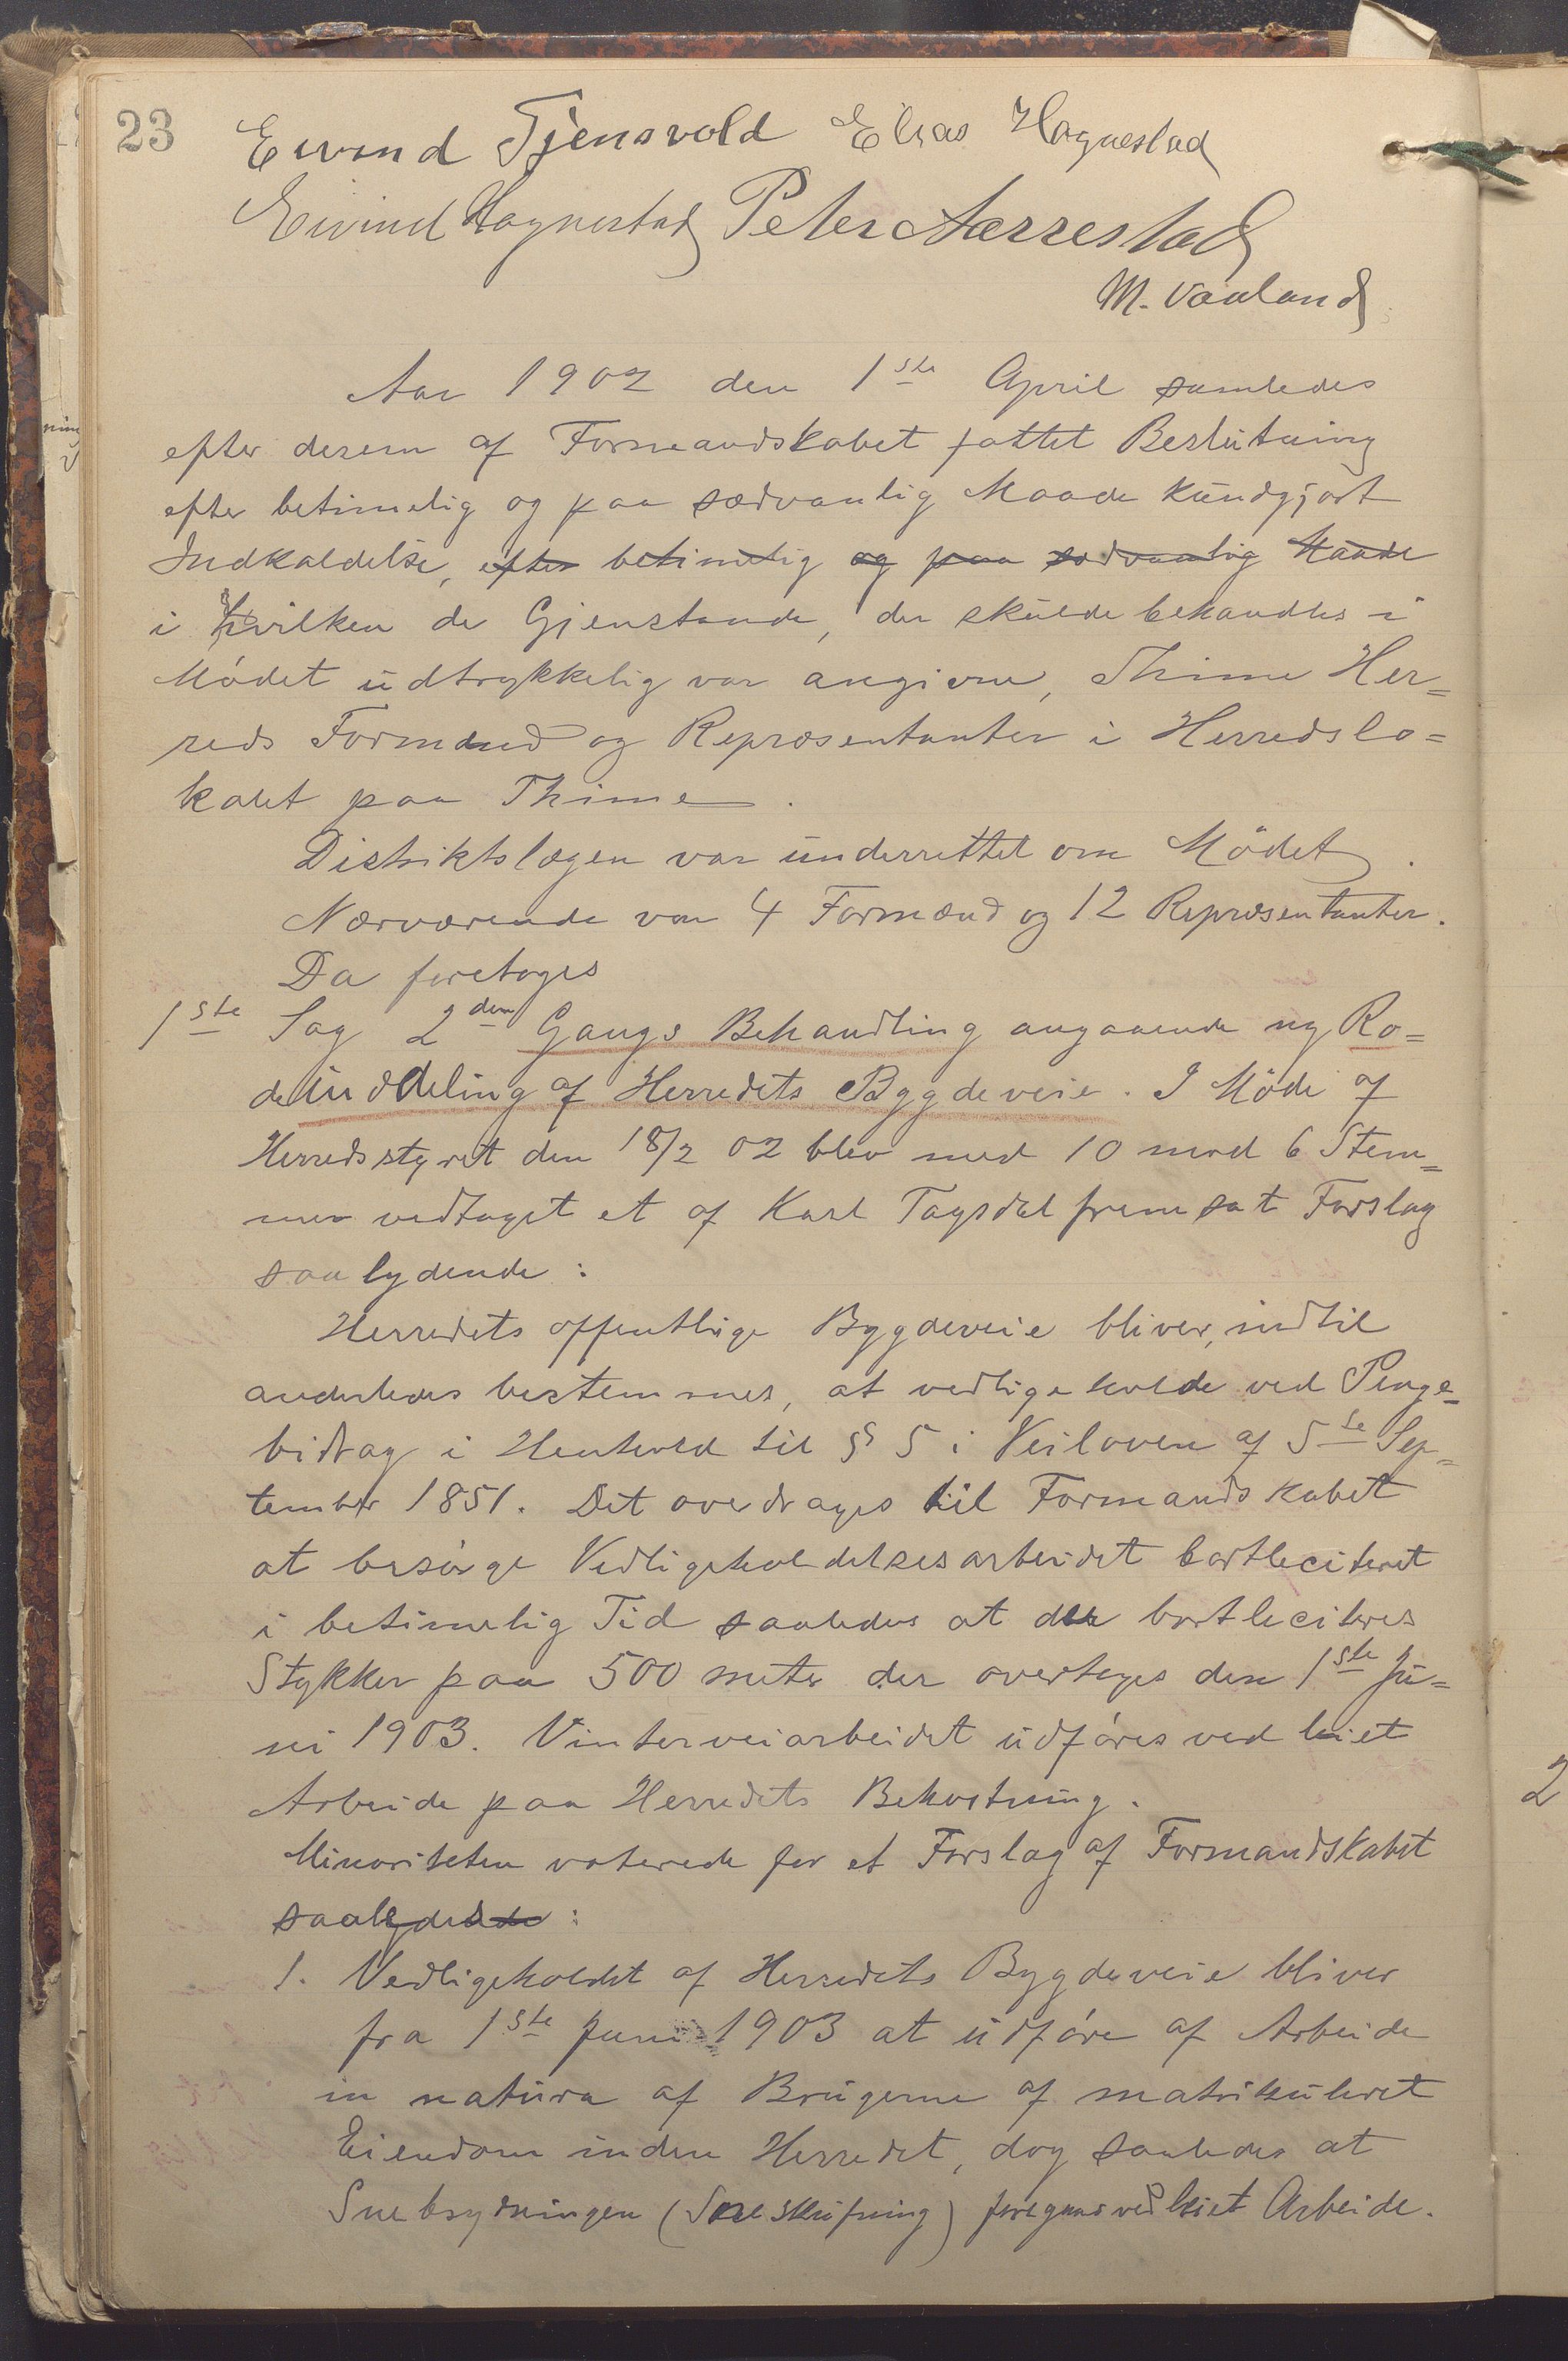 23
Eivind Tjensvold Elias Hognestad
Eivind Hognestad Peter Aarrestad
M. Vaaland
Aar 1902 den 1ste April samledes
efter desom af Formandskabet fattet Beslutning
efter betimelig og paa sædvanlig Maade kundgjort
Indkaldelse, efter betimelig og paa sædvanlig Maade
i hvilken de Gjenstande, der skulde behandles i
Mödet udtrykkelig var angivne, Thime Her=
reds Formænd og Repræsentanter i Herredslo=
kalet paa Thime.
Distriktslægen var underrettet om Mödet.
Nærværende var 4 Formænd og 12 Repræsentanter.
Da foretoges
1ste Sag 2den Gangs Behandling angaaende ny Ro=
deinddeling af Herredets Bygdeveie. I Möde af
Herredsstyret den 18/2 02 blev med 10 mod 6 Stem=
mer vedtaget et af Karl Tagsdal fremsat Forslag
saalydende:
Herredets offentlige Bygdeveie bliver, indtil
anderledes bestemmes, at vedligeholde ved Penge=
bidrag i Henhold til § 5 i Veiloven af 5te Sep=
tember 1851. Det overdrages til Formandskabet
at besörge Vedligeholdelsesarbeidet bortleciteret
i betimelig Tid saaledes at der bortleciteres
Stykker paa 500 meter der overtages den 1ste Ju=
ni 1903. Vinterveiarbeidet udföres ved leiet
Arbeide paa Herredets Bekostning.
Minoriteten voterede for et Forslag af Formandskabet
saalydende:
1. Vedligeholdet af Herredets Bygdeveie bliver
fra 1ste Juni 1903 at udföre af Arbeide
in natura af Brugerne af matrikuleret
Eiendom inden Herredet, dog saaledes at
Snebrydningen (Sneskufning) foregaar ved leiet Arbeide.
2